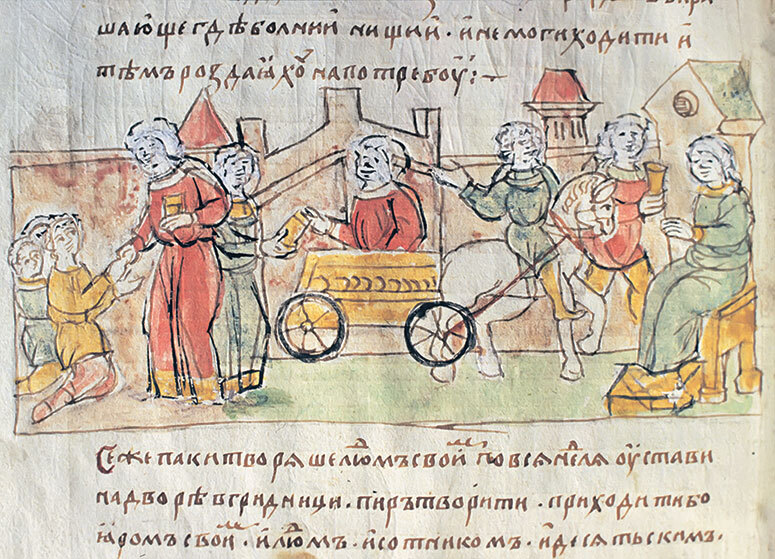 шающе гдѣ болний нищий · и не моги ходити и
тѣмъ роздаꙗхꙋ на потребоу :~
Се же паки творяше люⷣмъ свои^м повся нелⷣя оустави
на дворѣ в гридници · пиръ творити · приходити бо
ꙗромъ свои^м · и люⷣмъ · и сотником · и десятьским ·